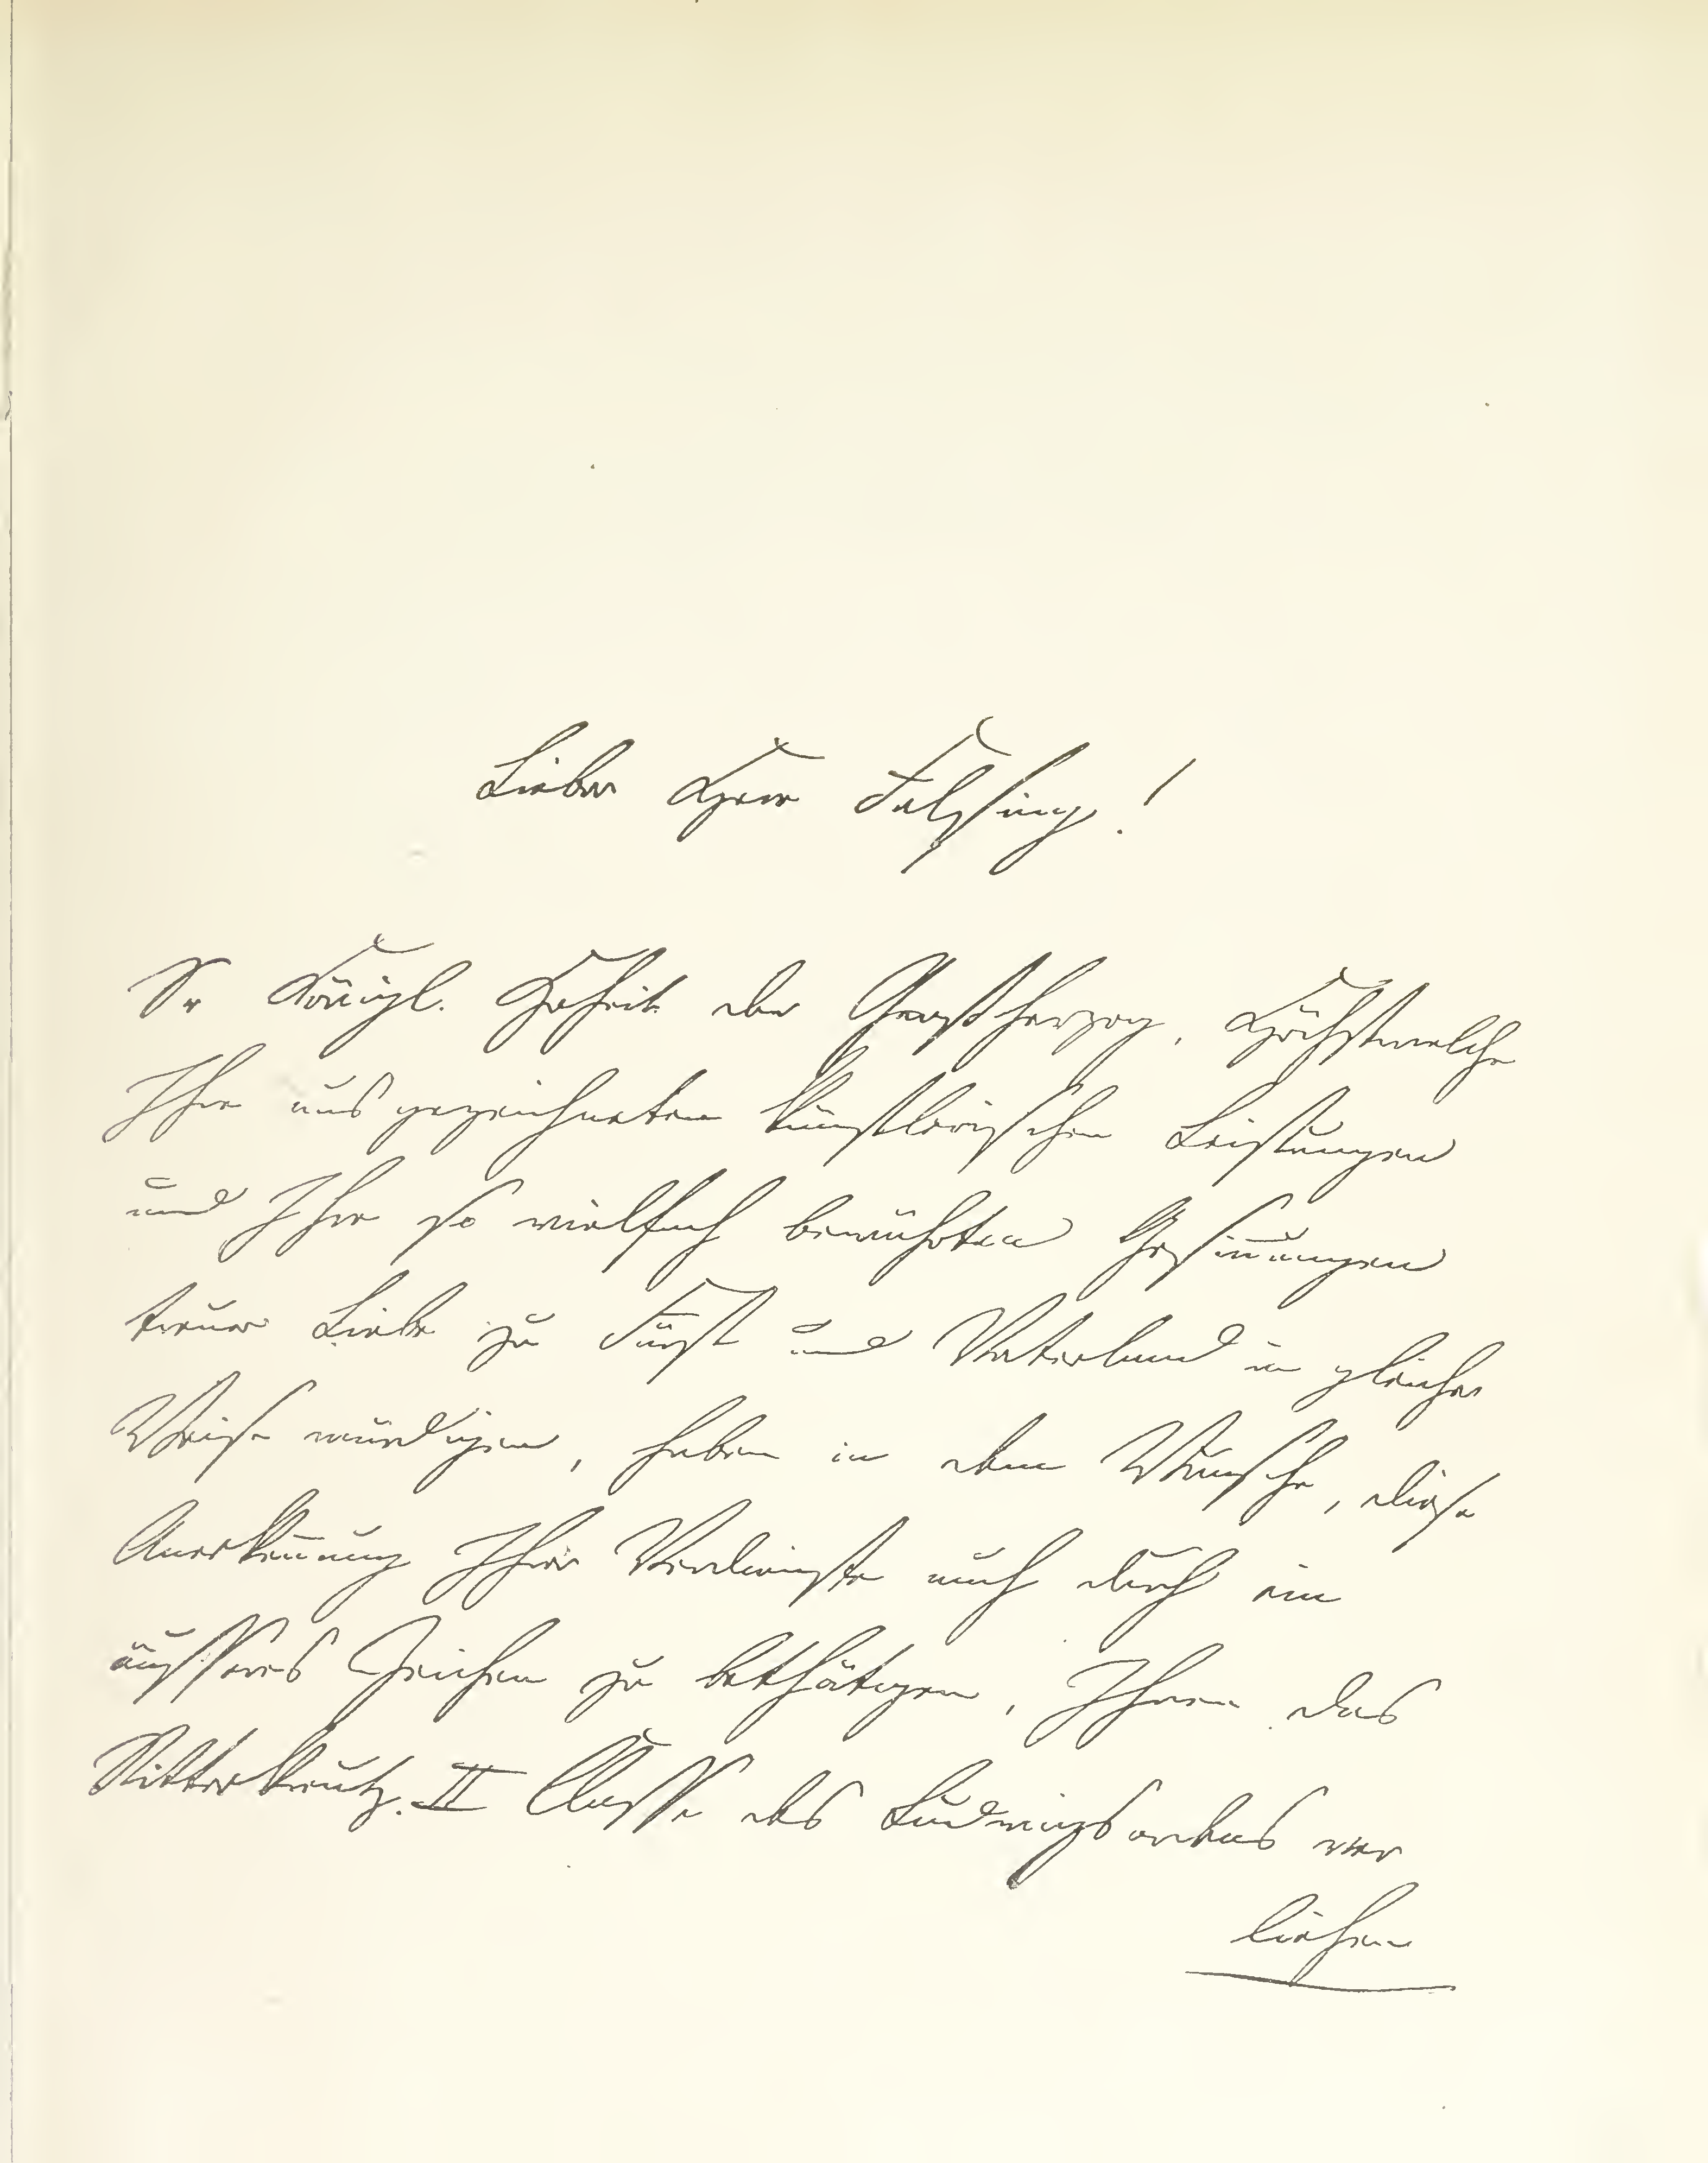 Lieber Herr Felsing!
Se Königl. Hoheit der Großherzog, Höchstwelche
Ihre ausgezeichneten künstlerischen Leistungen
und Ihre so vielfach bewährten Gesinnungen
treuer Liebe zu Fürst und Vaterland in gleicher
Weise würdigen, haben in dem Wunsche, diese
Anerkennung Ihrer Verdienste auch durch ein
äusseres Zeichen zu bethätigen, Ihnen das
Ritterkreutz II Classe des Ludwigsordens ver
liehen